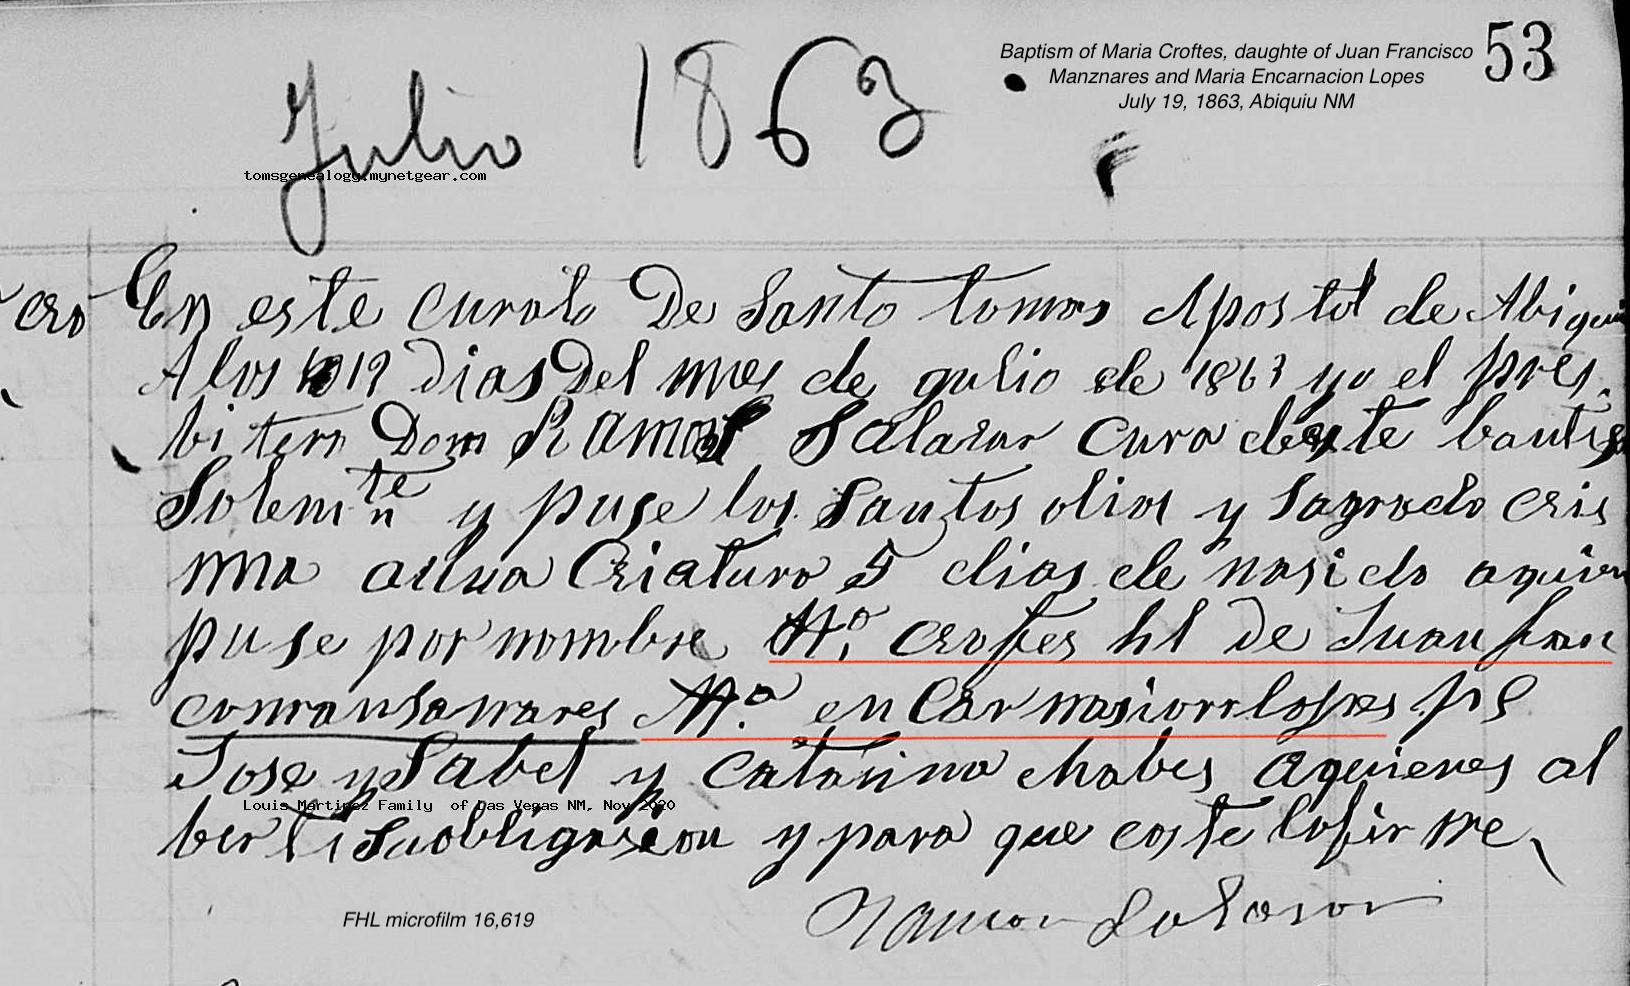 Baptism of Maria Croftes, daughte of Juan Francisco
Manznares and Maria Encarnacion Lopes
July 19, 1863, Abiquiu NM
53
Julio 1863
tomsgenealogy.mynetgear.com
cro
En este curato De Santo tomas Apostol de Abiqui
A los 19 dias Del mes de gulio de 1863 yo el pres.
bitero Dom Ramon Salasar Cura deste bautise
Solemnte y puse los Santos olios y Sagrado cris
ma auna Criatura 5 dias de nasido aquien
puse por nombre Ma. croftes hl de Juan fran
comansanares Ma. en Carnasion lopes ps
Jose ySabel y catarina chabes aquienes al
berti Suobligasion y para que coste lofirme
Louis Martinez Family of Las Vegas NM, Nov 2020
Ramon Salasar
FHL microfilm 16,619